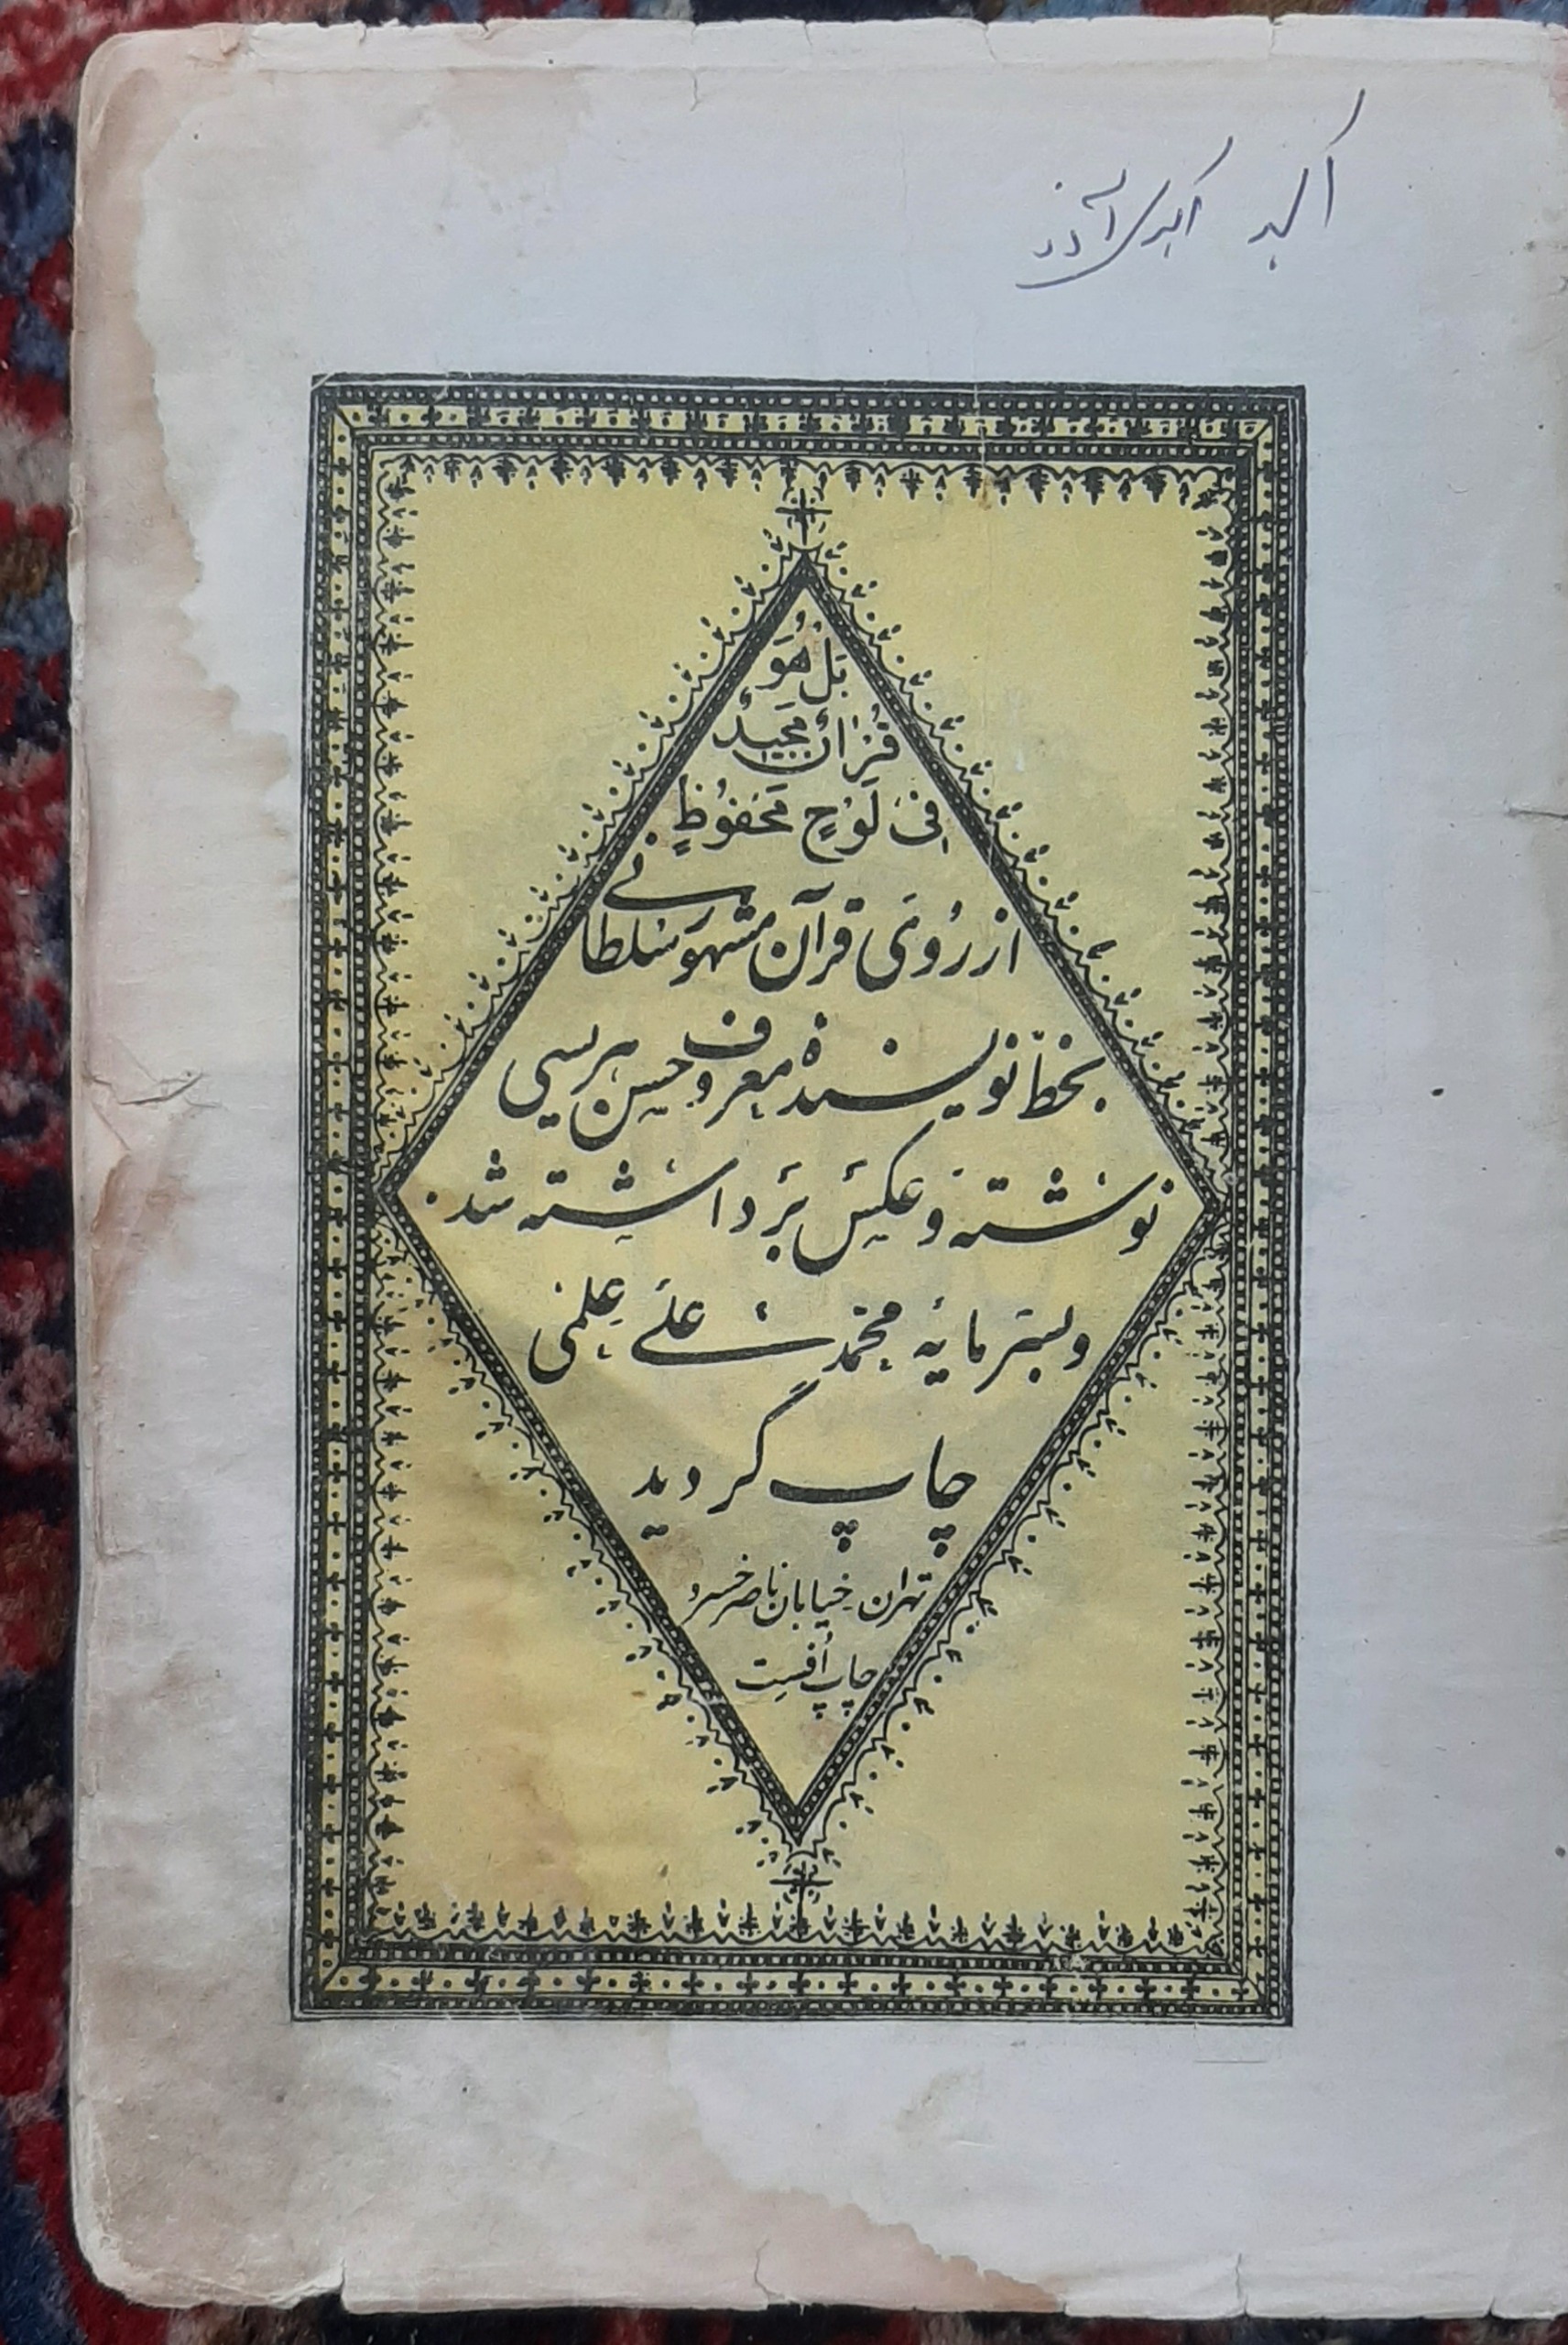 اکبر اکبری آذر
بَل هُوَ
قُرْانٌ مَجیدٌ
فی لَوْحٍ مَحفُوظٍ
از رُوی قرآن مشهور سُلطانی
بخطّ نویسندهٔ معروف حسن هریسی
نوشته و عکس برداشته شد.
و بسرمایه محمد علی علمی
چاپ گردید
تهران خیابان ناصر خسرو
چاپ اُفست